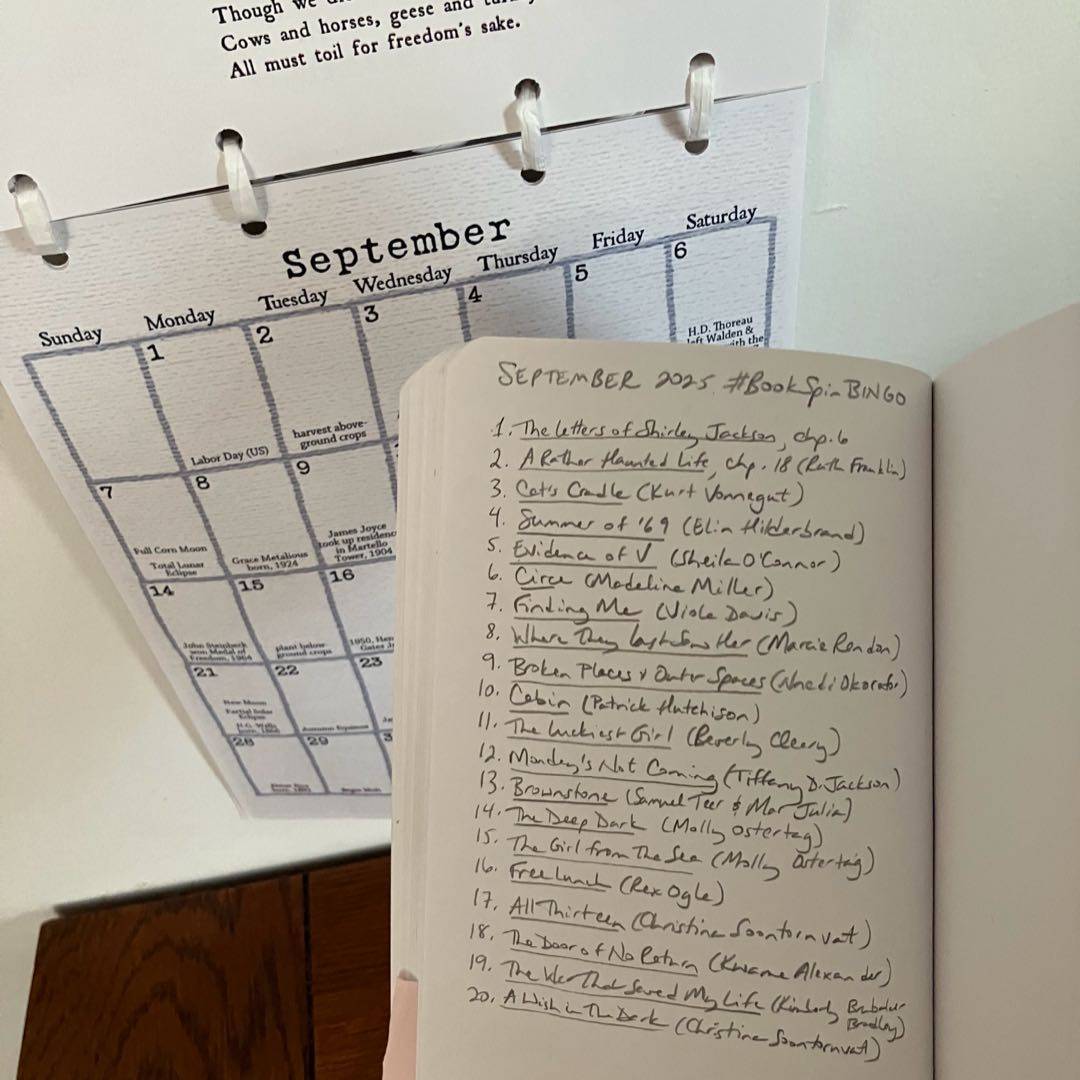 Though we
Cows and horses, geese and
All must toil for freedom's sake.
September
Sunday Monday Tuesday Wednesday Thursday Friday Saturday
1 2 3 4 5 6
H.D. Thoreau
left Walden &
with the
Labor Day (US)
harvast above-
ground crops
7 8 9
Full Corn Moon
Total Lunar
Eclipse
Grace Metalious
born, 1924
James Joyce
took up residenc
in Martello
Tower, 1904
14 15 16
John Steinbeck
won Medal of
Freedom, 1964
plant below-
ground crops
1950, Hen
Gates J
21 22 23
New Moon
Partial Solar
Eclipse
H.G. Wells
born, 1866
Autumn Equinox
28 29 3
SEPTEMBER 2025 #BookSpinBINGO
1. The Letters of Shirley Jackson, chp. 6
2. A Rather Haunted Life, chp. 18 (Ruth Franklin)
3. Cat's Cradle (Kurt Vonnegut)
4. Summer of '69 (Elin Hilderbrand)
5. Evidence of V (Sheila O'Connor)
6. Circe (Madeline Miller)
7. Finding Me (Viola Davis)
8. Where They Last Saw Her (Marcie Rendon)
9. Broken Places & Outer Spaces (Nnedi Okorafor)
10. Cabin (Patrick Hutchison)
11. The Luckiest Girl (Beverly Cleary)
12. Monday's Not Coming (Tiffany D. Jackson)
13. Brownstone (Samuel Teer & Mar Julia)
14. The Deep Dark (Molly Ostertag)
15. The Girl from The Sea (Molly Ostertag)
16. Free Lunch (Rex Ogle)
17. All Thirteen (Christina Soontornvat)
18. The Door of No Return (Kwame Alexander)
19. The War That Saved My Life (Kimberly Brubaker
Bradley)
20. A Wish in The Dark (Christina Soontornvat)